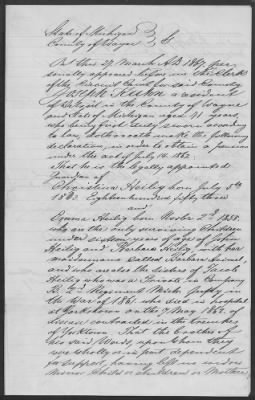 State of Michigan
County of Wayne } SS
On this 27 March AD 1867, per-
sonally appeared before me the Clerk
of the Circuit Court for said County
a resident
of Detroit in the County of Wayne
and State of Michigan aged 41 years,
who being first duly sworn according
to law, doth on oath make the following
declaration, in order to obtain a pension
under the act of July 14. 1862.
That he is the legally appointed
Guardian of
Christina Heilig born July 5th
1853. Eighteen hundred fifty three
and
Emma Heilig born 2d 1855.
who are the only surviving children
under sixteen years of age of John
Heilig and Barbara Heilig, with her
maidenname called Barbara
and who are also the sisters of Jacob
Heilig who was a Private in Company
Regiment Mich. Infty in
the War of 1861 who died in hospital
at Yorktown on the 7 May 1862 of
disease contracted in the trenches
of Yorktown. That the brother of
his said Wards, upon whom they
were wholly or in part dependent
for support, having left no widow
Minor Child or children or Mother